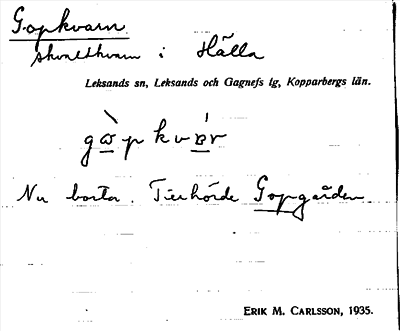 Gopkvarn
skvaltkvarn i Hälla
Leksands sn, Leksands och Gagnefs tg, Kopparbergs län.
Nu borta. Tillhörde Gopgården
ERIK M. CARLSSON, 1935.